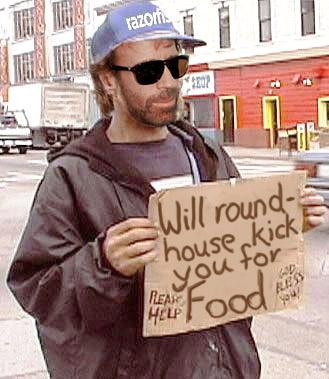 razorfis
SHOP
Will round-
house kick
you for
Food
PLEASE
HELP
GOD
BLESS
YOU!